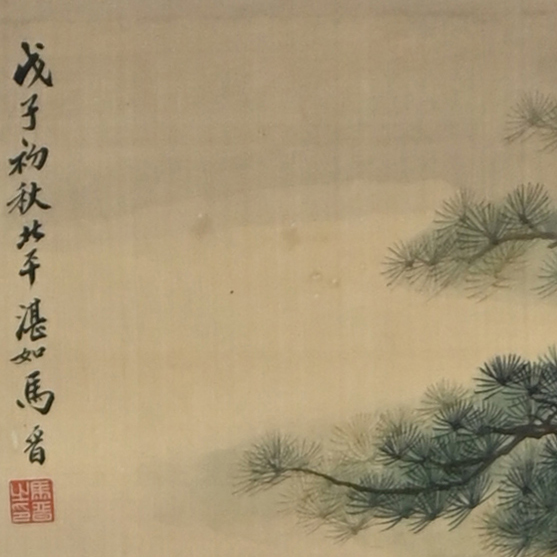 戊子初秋北平湛如馬晉
馬晉之印